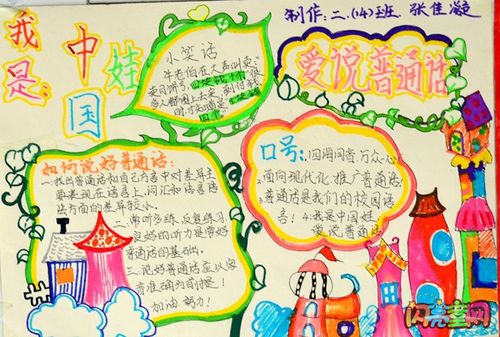 制作:二.(14)班.张佳凝
我是:
中国
娃
爱说普通话
小笑话
牛老伯在大声叫卖:
如何说好普通话:
一.找出普通话和自己方言中对差异主
要表现在语音上,词汇和语言语
法方面的差异较小。
二.勤听多练,反复练习
良好的听力是学好
普通话的基础。
三.说好普通话应以发
音准确为首讨想!
加油 努力!
口号:1.四海同音 万众一心
2.面向现代化,推广普通话!
3.普通话是我们的校园语
言!4.我是中国娃
爱说普通话
闪亮童网